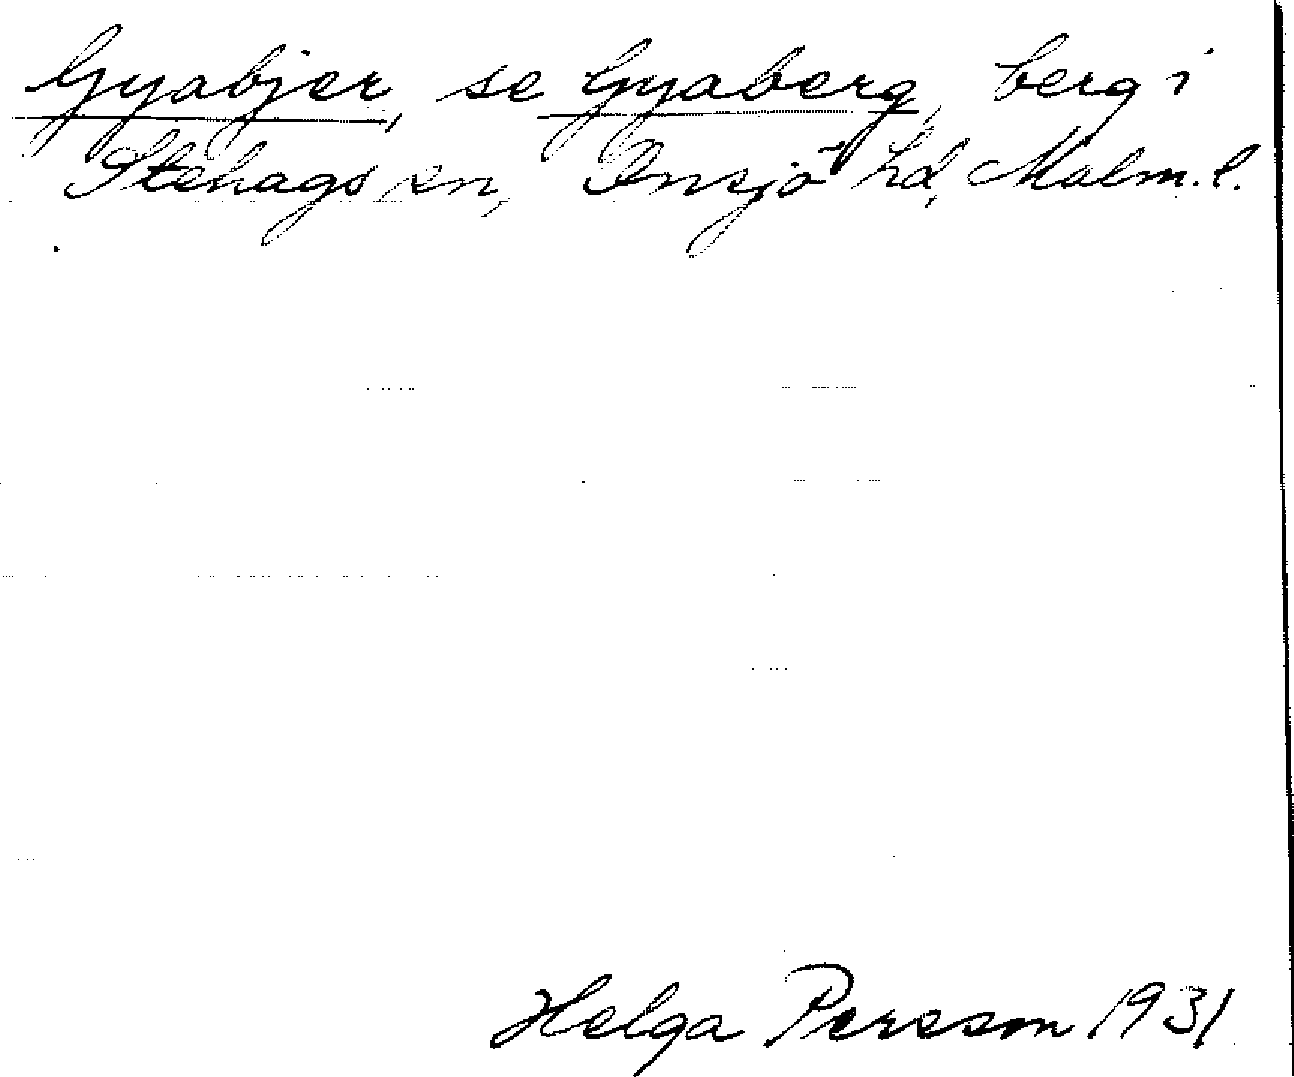 Gyabjer, se Gyaberg, berg i
Stehags sn, Onsjö hd, Malm. l.
Helga Persson 1931